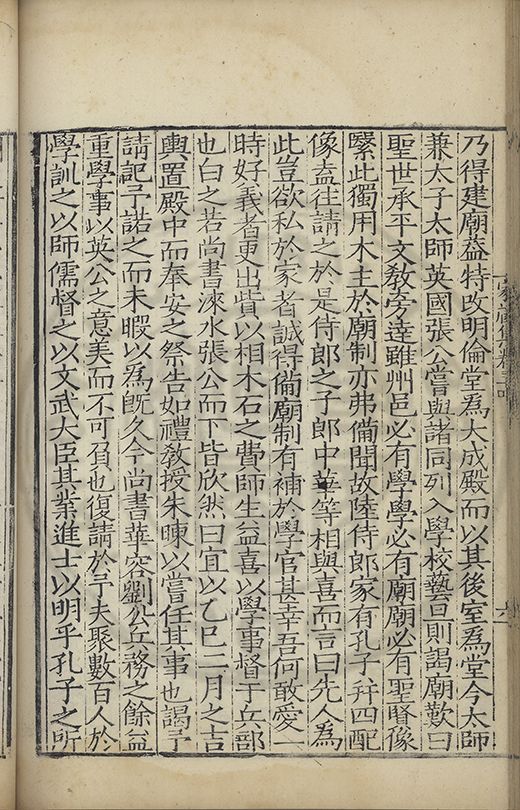 乃得建廟葢特改明倫堂為大成殿而以其後室為堂今太師
兼太子太師英國張公嘗與諸同列入學校藝已則謁廟歎曰
聖世承平文敎旁達雖州邑必有學學必有廟廟必有聖賢像
繄此獨用木主於廟制亦弗備聞故陸侍郎家有孔子并四配
像盍往請之於是侍郎之子郎中華等相與喜而言曰先人為
此豈欲私於家者誠得備廟制有補於學官甚幸吾何敢愛一
時好義者更出貲以相木石之費師生益喜以學事督于兵部
也白之若尚書涞水張公而下皆欣然曰宜以乙巳二月之吉
輿置殿中而奉安之祭告如禮敎授朱暕以嘗任其事也謁予
請記予諾之而未暇以為旣久今尚書華容劉公兵務之餘益
重學事以英公之意美而不可負也復請於予夫聚數百人於
學訓之以師儒督之以文武大臣其業進士以明乎孔子之所